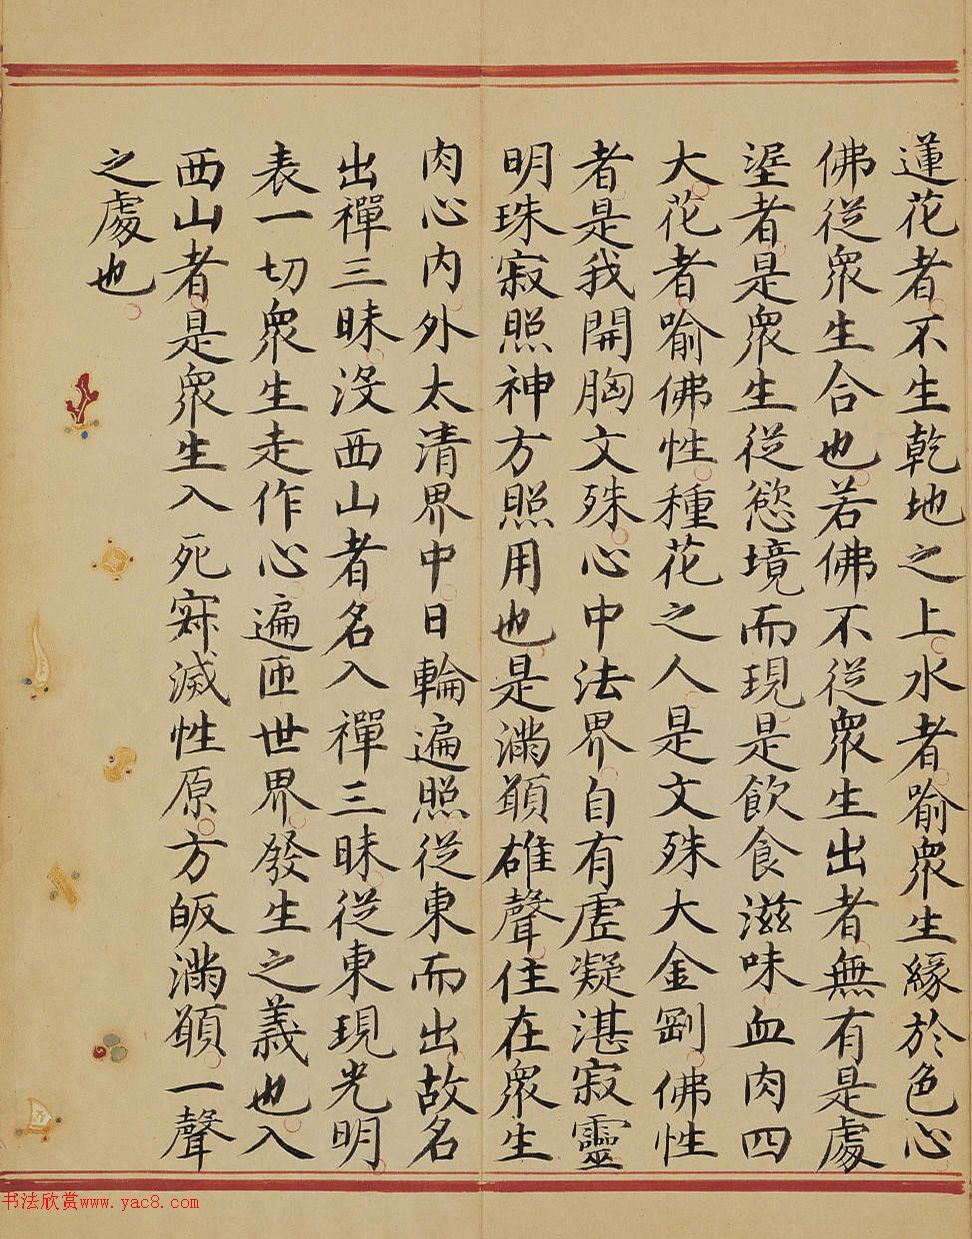 蓮花者不生乾地之上水者喻衆生緣於色心
佛從衆生合也若佛不從衆生出者無有是處
埿者是衆生從慾境而現是飲食滋味血肉四
大花者喻佛性種花之人是文殊大金剛佛性
者是我開胸文殊心中法界自有虛凝湛寂靈
明珠寂照神方照用也是滿願碓聲住在衆生
肉心內外太清界中日輪遍照從東而出故名
出禪三昧沒西山者名入禪三昧從東現光明
表一切衆生走作心遍匝世界發生之義也入
西山者是衆生入死寂滅性原方皈滿願一聲
之處也
书法欣赏www.yac8.com